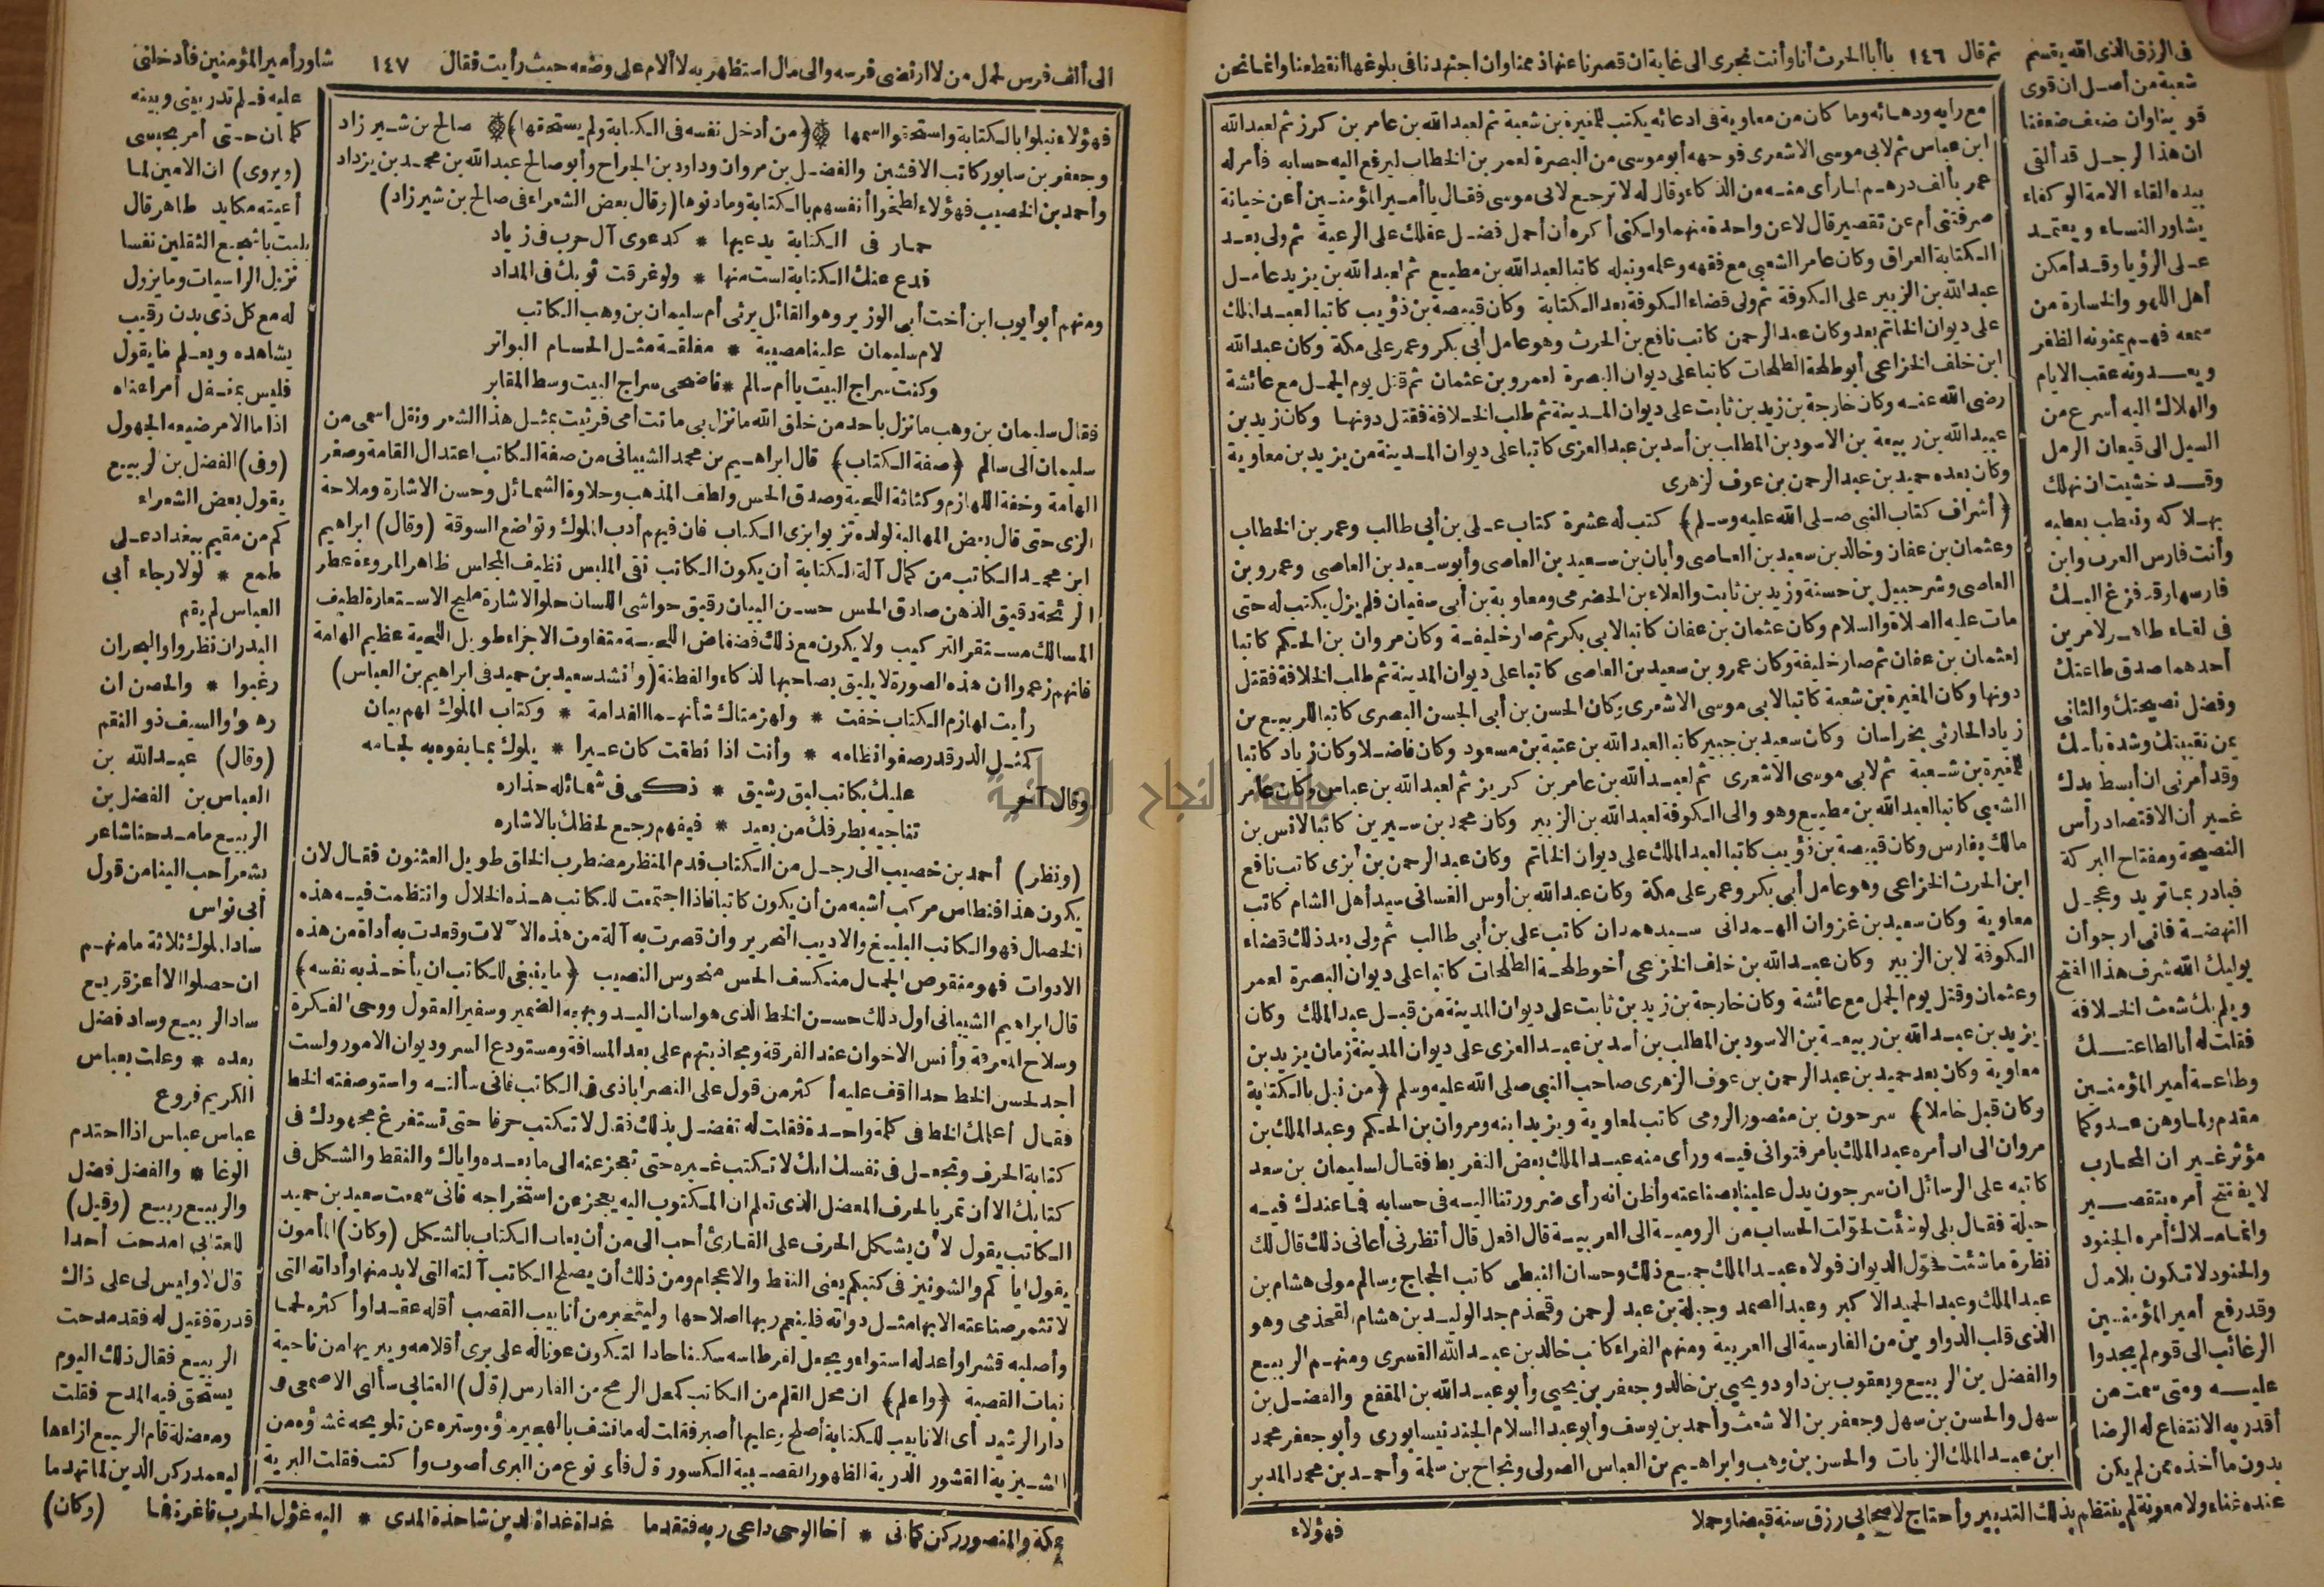 ثم قال ١٤٦ يا أبا الحرث أنا وأنت نجرى الى غاية ان قصرنا عنها ذممنا وان اجتهدنا فى بلوغها انقطعنا وانما نحن
فى الرزق الذى الله يقسم
شعبة من أصل ان قوى
قوينا وان ضعف ضعفنا
ان هذا الرجل قد ألقى
بيده القاء الامة الوكعاء
يشاور النساء ويعتمد
على الرؤيا وقد أمكن
أهل اللهو والخسارة من
سمعه فهم يمنونه الظفر
ويعدونه عقب الايام
والهلاك اليه أسرع من
السيل الى قيعان الرمل
وقد خشيت ان نهلك
بهلاكه ونعطب بعطبه
وأنت فارس العرب وابن
فارسها قد فزع اليك
فى لقاء طاهر لامرين
أحدهما صدق طاعتك
وفضل نصيحتك والثانى
يمن نقيبتك وشدة بأسك
وقد أمرنى ان أبسط يدك
غير أن الاقتصاد رأس
النصيحة ومفتاح البركة
فبادر بما تريد وعجل
النهضة فانى أرجو أن
يوليك الله شرف هذا الفتح
ويلم بك شعث الخلافة
فقلت له أنا لطاعتك
وطاعة أمير المؤمنين
مقدم ولما وهن عدوكما
مؤثر غير ان المحارب
لا يفتتح أمره بتقصير
وانما ملاك أمره الجنود
والجنود لا تكون بلا مال
وقد رفع أمير المؤمنين
الرغائب الى قوم لم يجدوا
عليه ومتى سمت من
أقدر به الانتفاع له الرضا
بدون ما أخذه من لم يكن
عنده غناء ولا معونة لم ينتظم بذلك التدبير وأحتاج لاصحابى رزق سنة قبضا وحملا
مع رايه ودهائه وما كان من معاوية فى ادعائه يكتب للمغيرة بن شعبة ثم لعبد الله بن عامر بن كرز ثم لعبد الله
ابن عباس ثم لابى موسى الاشعرى فوجهه أبو موسى من البصرة لعمر بن الخطاب ليرفع اليه حسابه فأمر له
عمر بألف درهم لما رأى منه من الذكاء وقال له لا ترجع لابى موسى فقال يا أمير المؤمنين أعن خيانة
صرفتنى أم عن تقصير قال لا عن واحدة منهما ولكنى أكره أن أحمل فضل عقلك على الرعية ثم ولى بعد
الكتابة العراق وكان عامر الشعبى مع فقهه وعلمه ونبله كاتبا لعبد الله بن مطيع ثم لعبد الله بن يزيد عامل
عبد الله بن الزبير على الكوفة ثم ولى قضاء الكوفة بعد الكتابة وكان قبيصة بن ذؤيب كاتبا لعبد الملك
على ديوان الخاتم بعد وكان عبد الرحمن كاتب نافع بن الحرث وهو عامل أبى بكر وعمر على مكة وكان عبد الله
ابن خلف الخزاعى أبو طلحة الطلحات كاتبا على ديوان البصرة لعمرو بن عثمان ثم قتل يوم الجمل مع عائشة
رضى الله عنه وكان خارجة بن زيد بن ثابت على ديوان المدينة ثم طلب الخلافة فقتل دونها وكان زيد بن
عبيد الله بن ربيعة بن الاسود بن المطلب بن أسد بن عبد العزى كاتبا على ديوان المدينة من يزيد بن معاوية
وكان بعده حميد بن عبد الرحمن بن عوف لزهرى
﴿أشراف كتاب النبى صلى الله عليه وسلم﴾ كتب له عشرة كتاب على بن أبى طالب وعمر بن الخطاب
وعثمان بن عفان وخالد بن سعيد بن العاصى وأبان بن سعيد بن العاصى وأبو سعيد بن العاصى وعمرو بن
العاصى وشرحبيل بن حسنة وزيد بن ثابت والعلاء بن الحضرمى ومعاوية بن أبى سفيان فلم يزل يكتب له حتى
مات عليه الصلاة والسلام وكان عثمان بن عفان كاتبا لابى بكر ثم صار خليفة وكان مروان بن الحكم كاتبا
لعثمان بن عفان ثم صار خليفة وكان عمرو بن سعيد بن العاصى كاتبا على ديوان المدينة ثم طلب الخلافة فقتل
دونها وكان المغيرة بن شعبة كاتبا لابى موسى الاشعرى وكان الحسن بن أبى الحسن البصرى كاتبا للربيع بن
زياد الحارثى بخراسان وكان سعيد بن جبير كاتبا لعبد الله بن عتبة بن مسعود وكان فاضلا وكان زياد كاتبا
للمغيرة بن شعبة ثم لابى موسى الاشعرى ثم لعبد الله بن عامر بن كريز ثم لعبد الله بن عباس وكان عامر
الشعبى كاتبا لعبد الله بن مطيع وهو والى الكوفة لعبد الله بن الزبير وكان محمد بن سيرين كاتبا لانس بن
مالك بفارس وكان قبيصة بن ذؤيب كاتبا لعبد الملك على ديوان الخاتم وكان عبد الرحمن بن أبزى كاتب نافع
ابن الحرث الخزاعى وهو عامل أبى بكر وعمر على مكة وكان عبد الله بن أوس الغسانى سيد أهل الشام كاتب
معاوية وكان سعيد بن غزوان الهمدانى سيد همدان كاتب على بن أبى طالب ثم ولى بعد ذلك قضاء
الكوفة لابن الزبير وكان عبد الله بن خلف الخزعى أخو طلحة الطلحات كاتبا على ديوان البصرة لعمر
وعثمان وقتل يوم الجمل مع عائشة وكان خارجة بن زيد بن ثابت على ديوان المدينة من قبل عبد الملك وكان
يزيد بن عبد الله بن ربيعة بن الاسود بن المطلب بن أسد بن عبد العزى على ديوان المدينة زمان يزيد بن
معاوية وكان بعد حميد بن عبد الرحمن بن عوف الزهرى صاحب النبى صلى الله عليه وسلم ﴿من نبل بالكتابة
وكان قبل خاملا﴾ سرجون بن منصور الرومى كاتب لمعاوية ويزيد ابنه ومروان بن الحكم وعبد الملك بن
مروان الى ان أمره عبد الملك بأمر فتوانى فيه ورأى منه عبد الملك بعض التفريط فقال لسليمان بن سعد
كاتبه على الرسائل ان سرجون يدل علينا بصناعته وأظن انه رأى ضرورتنا اليه فى حسابه فما عندك فيه
حيلة فقال بلى لو شئت لحولت الحساب من الرومية الى العربية قال افعل قال أنظرنى أعانى ذلك قال لك
نظرة ما شئت فحول الديوان فولاه عبد الملك جميع ذلك وحسان النبطى كاتب الحجاج وسالم مولى هشام بن
عبد الملك وعبد الحميد الاكبر وعبد الصمد وجبلة بن عبد الرحمن وقحذم جد الوليد بن هشام القحذمى وهو
الذى قلب الدواوين من الفارسية الى العربية ومنهم الفراء كاتب خالد بن عبد الله القسرى ومنهم الربيع
والفضل بن الربيع ويعقوب بن داود ويحيى بن خالد وجعفر بن يحيى وأبو عبد الله بن المقفع والفضل بن
سهل والحسن بن سهل وجعفر بن الاشعث وأحمد بن يوسف وأبو عبد السلام الجند نيسابورى وأبو جعفر محمد
ابن عبد الملك الزيات والحسن بن وهب وابراهيم بن العباس الصولى ونجاح بن سلمة وأحمد بن محمد المدبر
فهؤلاء
الى ألف فرس لحمل من لا ارتضى فرسه والى مال استظهر به لا ألام على وضعه حيث رأيت فقال ١٤٧ شاور أمير المؤمنين فأدخلنى
فهؤلاء نبلوا بالكتابة واستحقوا اسمها ﴿من أدخل نفسه فى الكتابة ولم يستحقها﴾ صالح بن شيرزاد
وجعفر بن سابور كاتب الافشين والفضل بن مروان وداود بن الجراح وأبو صالح عبد الله بن محمد بن يزداد
وأحمد بن الخصيب فهؤلاء لطخوا أنفسهم بالكتابة وما دنوها (وقال بعض الشعراء فى صالح بن شيرزاد)
حمار فى الكتابة يدعيها * كدعوى آل حرب فى زياد
فدع عنك الكتابة لست منها * ولو غرقت ثوبك فى المداد
ومنهم أبو أيوب ابن أخت أبى الوزير وهو القائل يرثى أم سليمان بن وهب الكاتب
لام سليمان علينا مصيبة * مغلقة مثل الحسام البواتر
وكنت سراج البيت يا أم سالم * فاضحى سراج البيت وسط المقابر
فقال سليمان بن وهب ما نزل باحد من خلق الله ما نزل بى ماتت أمى فرثيت بمثل هذا الشعر ونقل اسمى من
سليمان الى سالم ﴿صفة الكتاب﴾ قال ابراهيم بن محمد الشيبانى من صفة الكاتب اعتدال القامة وصغر
الهامة وخفة اللهازم وكثاثة اللحية وصدق الحس ولطف المذهب وحلاوة الشمائل وحسن الاشارة وملاحة
الزى حتى قال بعض المهالبة لولده تزيوا بزى الكتاب فان فيهم أدب الملوك وتواضع السوقة (وقال) ابراهيم
ابن محمد الكاتب من كمال آلة الكتابة أن يكون الكاتب نقى الملبس نظيف المجلس ظاهر المروءة عطر
الرائحة دقيق الذهن صادق الحس حسن البيان رقيق حواشى اللسان حلو الاشارة مليح الاستعارة لطيف
المسالك مستقر التركيب ولا يكون مع ذلك فضفاض اللحية متفاوت الاجزاء طويل اللحية عظيم الهامة
فانهم زعموا ان هذه الصورة لا يليق بصاحبها الذكاء والفطنة (وانشد سعيد بن حميد فى ابراهيم بن العباس)
رأيت لهازم الكتاب خفت * ولهزمتاك شأنهما الفدامة * وكتاب الملوك لهم بيان
كمثل الدر قد رصفوا نظامه * وأنت اذا نطقت كان عيرا * يلوك بما يفوه به لجامه
وقال آخر عليك بكاتب لبق رشيق * ذكى فى شمائله حذاره
تناجيه بطرفك من بعيد * فيفهم رجع لحظك بالاشاره
(ونظر) أحمد بن خصيب الى رجل من الكتاب فدم المنظر مضطرب الخلق طويل العثنون فقال لان
يكون هذا فنطاس مركب أشبه من أن يكون كاتبا فاذا اجتمعت للكاتب هذه الخلال وانتظمت فيه هذه
الخصال فهو الكاتب البليغ والاديب النحرير وان قصرت به آلة من هذه الآلات وقعدت به أداة من هذه
الادوات فهو منقوص الجمال منكسف الحس منحوس النصيب ﴿ما ينبغى للكاتب ان يأخذ به نفسه﴾
قال ابراهيم الشيبانى أول ذلك حسن الخط الذى هو لسان اليد وبهجة الضمير وسفير العقول ووحى الفكرة
وسلاح المعرفة وأنس الاخوان عند الفرقة ومحاذبتهم على بعد المسافة ومستودع السر وديوان الامور ولست
أجد لحسن الخط حدا أقف عليه أكثر من قول على النصر اباذى فى الكاتب فانى سألته واستوصفته الخط
فقال أعلمك الخط فى كلمة واحدة فقلت له تفضل بذلك فقال لا تكتب حرفا حتى تستفرغ مجهودك فى
كتابة الحرف وتجعل فى نفسك انك لا تكتب غيره حتى تعجز عنه الى ما بعده واياك والنقط والشكل فى
كتابك الا أن تمر بالحرف المعضل الذى تعلم ان المكتوب اليه يعجز عن استخراجه فانى سمعت سعيد بن حميد
الكاتب يقول لأن يشكل الحرف على القارئ أحب الى من أن يعاب الكتاب بالشكل (وكان) المأمون
يقول اياكم والشونيز فى كتبكم يعنى النقط والاعجام ومن ذلك أن يصلح الكاتب آلته التى لا بد منها وأداته التى
لا تتم صناعته الا بها مثل دواته فلينعم ربها اصلاحها وليتخير من أنابيب القصب أقله عقدا وأكثره لحما
وأصلبه قشرا وأعدله استواء ويجعل لقرطاسه سكينا حادا لتكون عونا له على برى أقلامه ويبريها من ناحية
نبات القصبة ﴿واعلم﴾ ان محل القلم من الكاتب كمحل الرمح من الفارس (قال) العتابى سألنى الاصمعى فى
دار الرشيد أى الانابيب للكتابة أصلح وعليها أصبر فقلت له ما نشف بالهجير ماؤه وستره عن تلويحه غشاؤه من
التبرية القشور الدرية الظهور الفضية الكسور قال فأى نوع من البرى أصوب وأكتب فقلت البرية
عليه فلم تدر بينى وبينه
كلمتان حتى أمر بحبسى
(ويروى) ان الامين لما
أعيته مكايد طاهر قال
بليت باشجع الثقلين نفسا
تزول الراسيات وما يزول
له مع كل ذى بدن رقيب
يشاهده ويعلم ما يقول
فليس بمغفل أمرا عناه
اذا ما الامر ضيعه الجهول
(وفى) الفضل بن الربيع
يقول بعض الشعراء
كم من مقيم ببغداد على
طمع * لولا رجاء أبى
العباس لم يقم
البدران نظروا والبحران
رغبوا * والحصن ان
رهبوا والسيف ذو النقم
(وقال) عبد الله بن
العباس بن الفضل بن
الربيع ما مدحنا شاعر
بشعر أحب الينا من قول
أبى نواس
ساد الملوك ثلاثة ما منهم
ان حصلوا الا أعز قريع
ساد الربيع وساد فضل
بعده * وعلت بعباس
الكريم فروع
عباس عباس اذا احتدم
الوغا * والفضل فضل
والربيع ربيع (وقيل)
للعتابى أمدحت أحدا
قال لا وليس لى على ذاك
قدرة فقيل له فقد مدحت
الربيع فقال ذلك اليوم
يستحق فيه المدح فقلت
ومعضلة قام الربيع ازاءها
ليعمد ركن الدين لما تهدما
بمكة والمنصور ركن كمانى * أخا الوحى داعى ربه فتقدما غداة غداة لدين شاحذة المدى * اليه غؤل الحرب فاغرة فما (وكان)
جامعة النجاح الوطنية